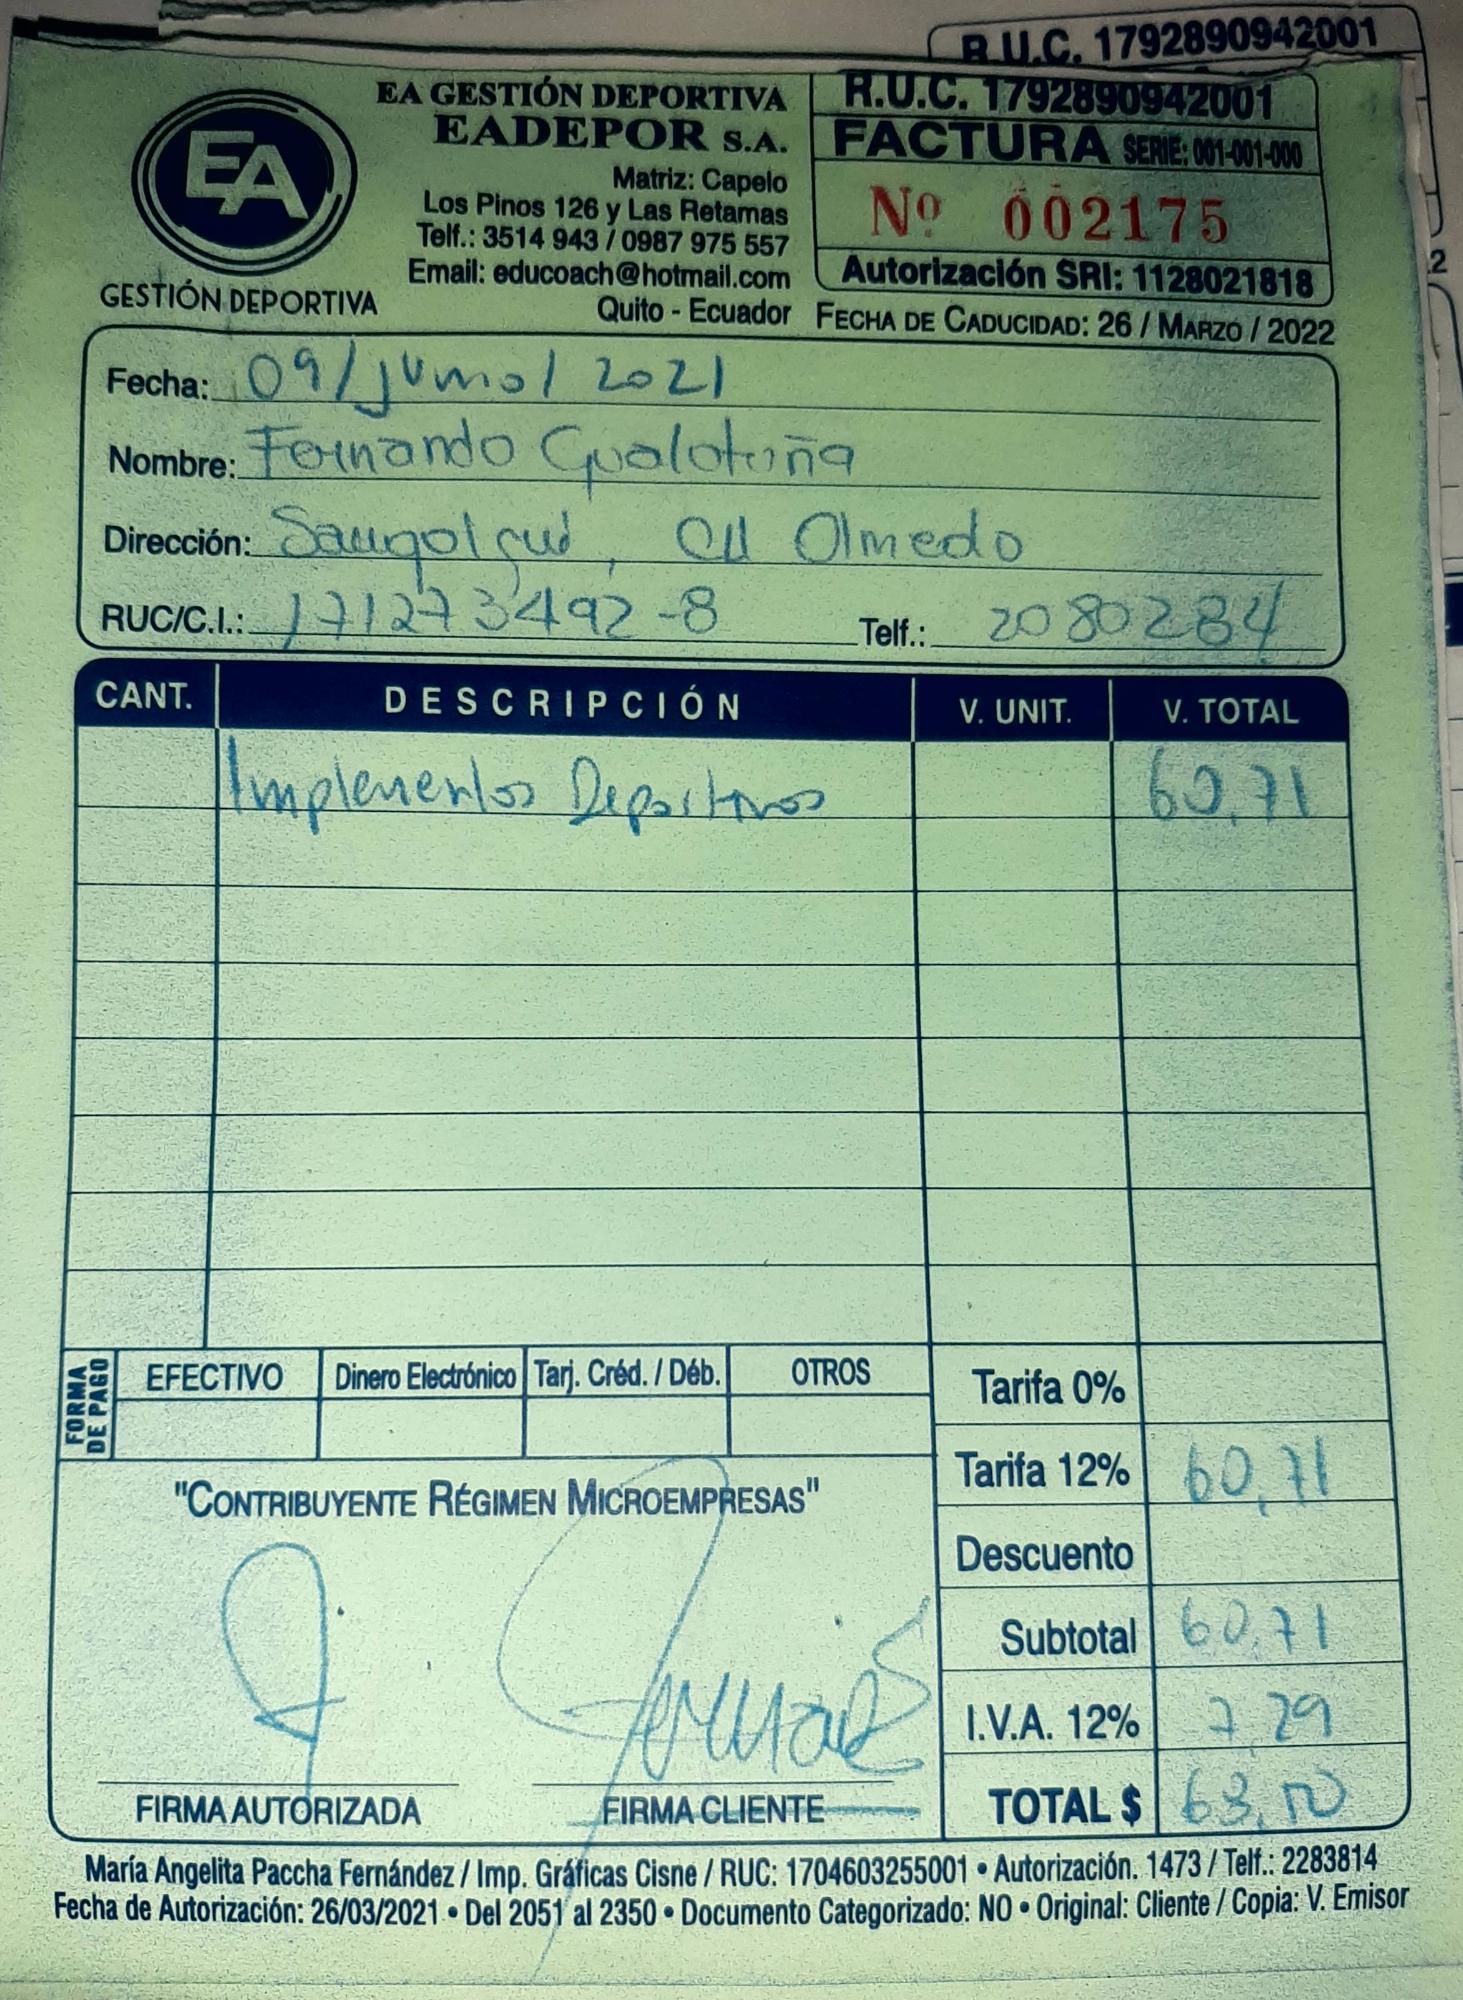 R.U.C. 1792890942001
EA
GESTIÓN DEPORTIVA
EA GESTIÓN DEPORTIVA
EADEPOR S.A.
Matriz: Capelo
Los Pinos 126 y Las Retamas
Telf.: 3514 943 / 0987 975 557
Email: educoach@hotmail.com
Quito - Ecuador
R.U.C. 1792890942001
FACTURA SERIE: 001-001-000
Nº 002175
Autorización SRI: 1128021818
FECHA DE CADUCIDAD: 26 / MARZO / 2022
Fecha: 09/junio/2021
Nombre: Fernando Gualotuña
Dirección: Sangolquí, Cll Olmedo
RUC/C.I.: 171273492-8 Telf.: 2080284
CANT. DESCRIPCIÓN V. UNIT. V. TOTAL
Implementos Deportivos 60,71
FORMA DE PAGO EFECTIVO Dinero Electrónico Tarj. Créd. / Déb. OTROS
Tarifa 0%
Tarifa 12% 60,71
Descuento
Subtotal 60,71
I.V.A. 12% 7,29
TOTAL $
"CONTRIBUYENTE RÉGIMEN MICROEMPRESAS"
FIRMA AUTORIZADA FIRMA CLIENTE
María Angelita Paccha Fernández / Imp. Gráficas Cisne / RUC: 1704603255001 • Autorización. 1473 / Telf.: 2283814
Fecha de Autorización: 26/03/2021 • Del 2051 al 2350 • Documento Categorizado: NO • Original: Cliente / Copia: V. Emisor